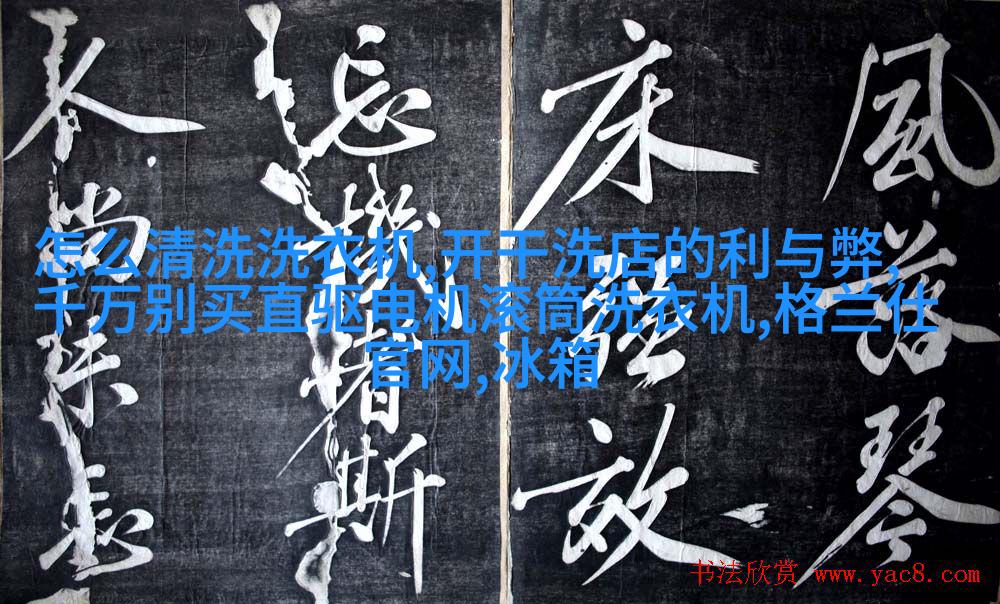 怎么清洗洗衣机,开干洗店的利与弊,
千万别买直驱电机滚筒洗衣机,格兰仕
官网,冰箱
風落琴
床
忘機者斯
书法欣赏 www.yac8.com